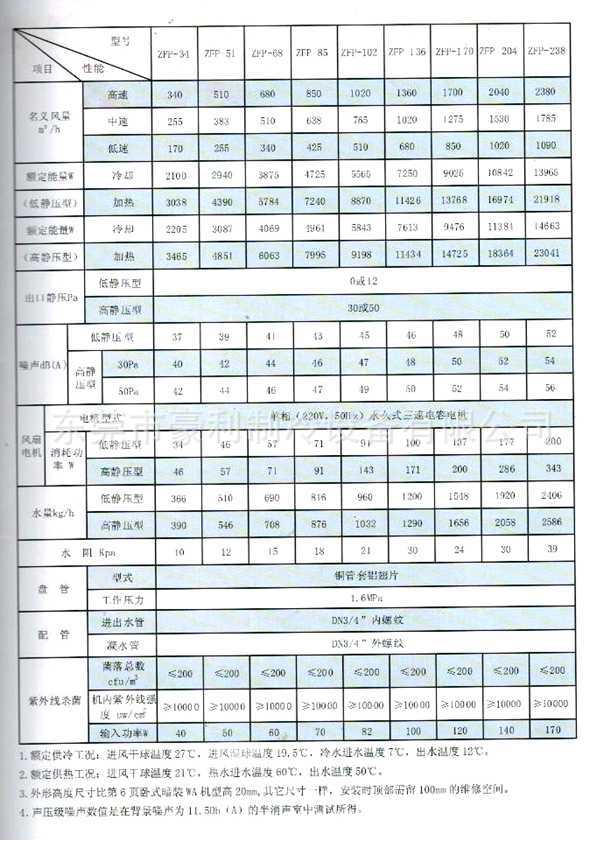 型号
项目 性能 ZFP-34 ZFP 51 ZFP-68 ZFP 85 ZFP-102 ZFP 136 ZFP-170 ZFP 204 ZFP-238
名义风量 m³/h 高速 340 510 680 850 1020 1360 1700 2040 2380
中速 255 383 510 638 765 1020 1275 1530 1785
低速 170 255 340 425 510 680 850 1020 1090
额定能量W 冷却 2100 2940 3875 4725 5565 7250 9025 10842 13965
(低静压型) 加热 3038 4390 5784 7240 8870 11426 13768 16974 21918
额定能量W 冷却 2205 3087 4069 4961 5843 7613 9476 11384 14663
(高静压型) 加热 3465 4851 6063 7995 9198 11434 14725 18364 23041
出口静压Pa 低静压型 0或12
高静压型 30或50
噪声dB(A) 低静压型 37 39 41 43 45 46 48 50 52
高静压型 30Pa 40 42 44 46 47 48 50 52 54
50Pa 42 44 46 47 49 50 52 54 56
风扇电机 电机型式 单相(220V、50Hz)永久式三速电容电机
消耗功率 W 低静压型 34 46 57 71 91 100 137 177 200
高静压型 46 57 71 91 143 171 200 286 343
水量kg/h 低静压型 366 510 690 816 960 1200 1548 1920 2406
高静压型 390 546 708 876 1032 1290 1656 2058 2586
水 阻 Kpa 10 12 15 18 21 30 24 30 39
盘 管 型式 铜管套铝翅片
工作压力 1.6MPa
配 管 进出水管 DN3/4"内螺纹
凝水管 DN3/4"外螺纹
紫外线杀菌 菌落总数 cfu/m³ ≤200 ≤200 ≤200 ≤200 ≤200 ≤200 ≤200 ≤200 ≤200
机内紫外线强度 uw/cm² ≥10000 ≥10000 ≥10000 ≥10000 ≥10000 ≥10000 ≥10000 ≥10000 ≥10000
输入功率W 40 50 60 70 82 100 120 140 170
1.额定供冷工况：进风干球温度27℃，进风湿球温度19.5℃，冷水进水温度7℃，出水温度12℃。
2.额定供热工况：进风干球温度21℃，热水进水温度60℃，出水温度50℃。
3.外形高度尺寸比第6页卧式暗装WA机型高20mm,其它尺寸一样，安装时顶部需留100mm的维修空间。
4.声压级噪声数值是在背景噪声为11.5Db（A）的半消声室中测试所得。
东莞市豪利制冷设备有限公司